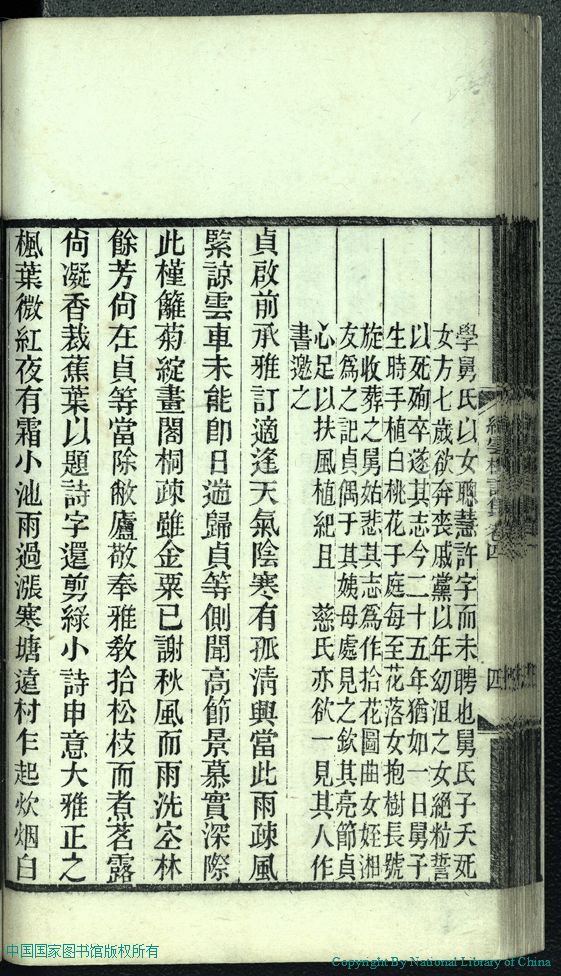 學舅氏以女聰慧許字而未聘也舅氏子夭死
女方七歲欲奔喪戚黨以年幼沮之女絕粒誓
以死殉卒遂其志今二十五年猶如一日舅子
生時手植白桃花于庭每至花落女抱樹長號
旋收葬之舅姑悲其志爲作拾花圖曲女姪湘
友爲之記貞偶于其姨母處見之欽其亮節貞
心足以扶風植紀且　慈氏亦欲一見其人作
書邀之
貞啟前承雅訂適逢天氣陰寒有孤清興當此雨疎風
緊諒雲車未能卽日遄歸貞等側聞高節景慕實深際
此槿籬菊綻畫閣桐疎雖金粟已謝秋風而雨洗空林
餘芳尙在貞等當除敝廬敬奉雅教拾松枝而煮茗露
尙凝香裁蕉葉以題詩字還剪綠小詩申意大雅正之
楓葉微紅夜有霜小池雨過漲寒塘遠村乍起炊烟白
雲 詩集卷四
四
中国国家图书馆版权所有
Copyright By National Library of China